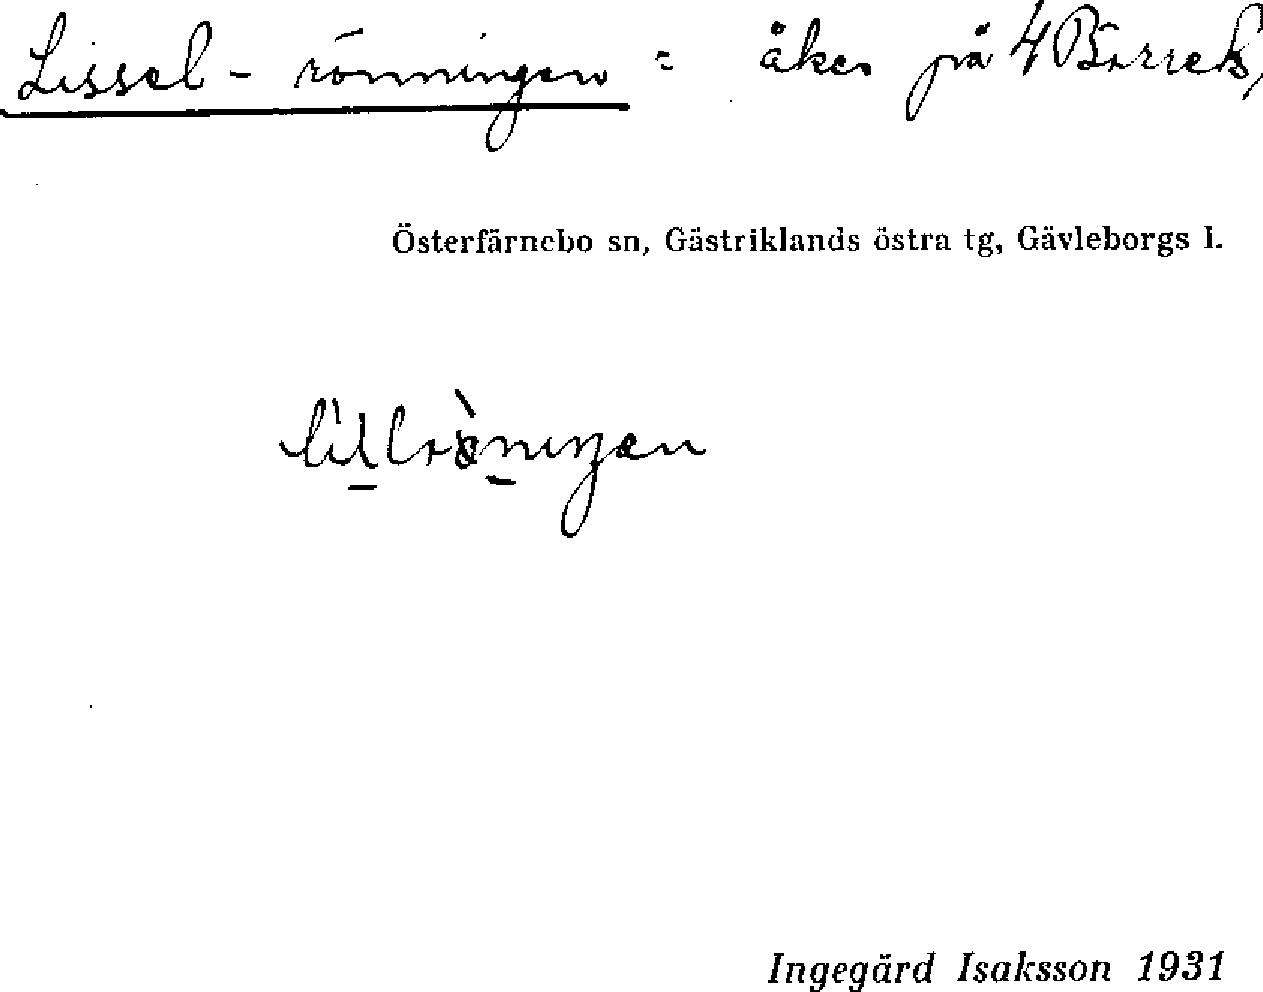 Lissel-rönningen = åker på 4 Bärrek,
Österfärnebo sn, Gästriklands östra tg, Gävleborgs l.
Ingegärd Isaksson 1931